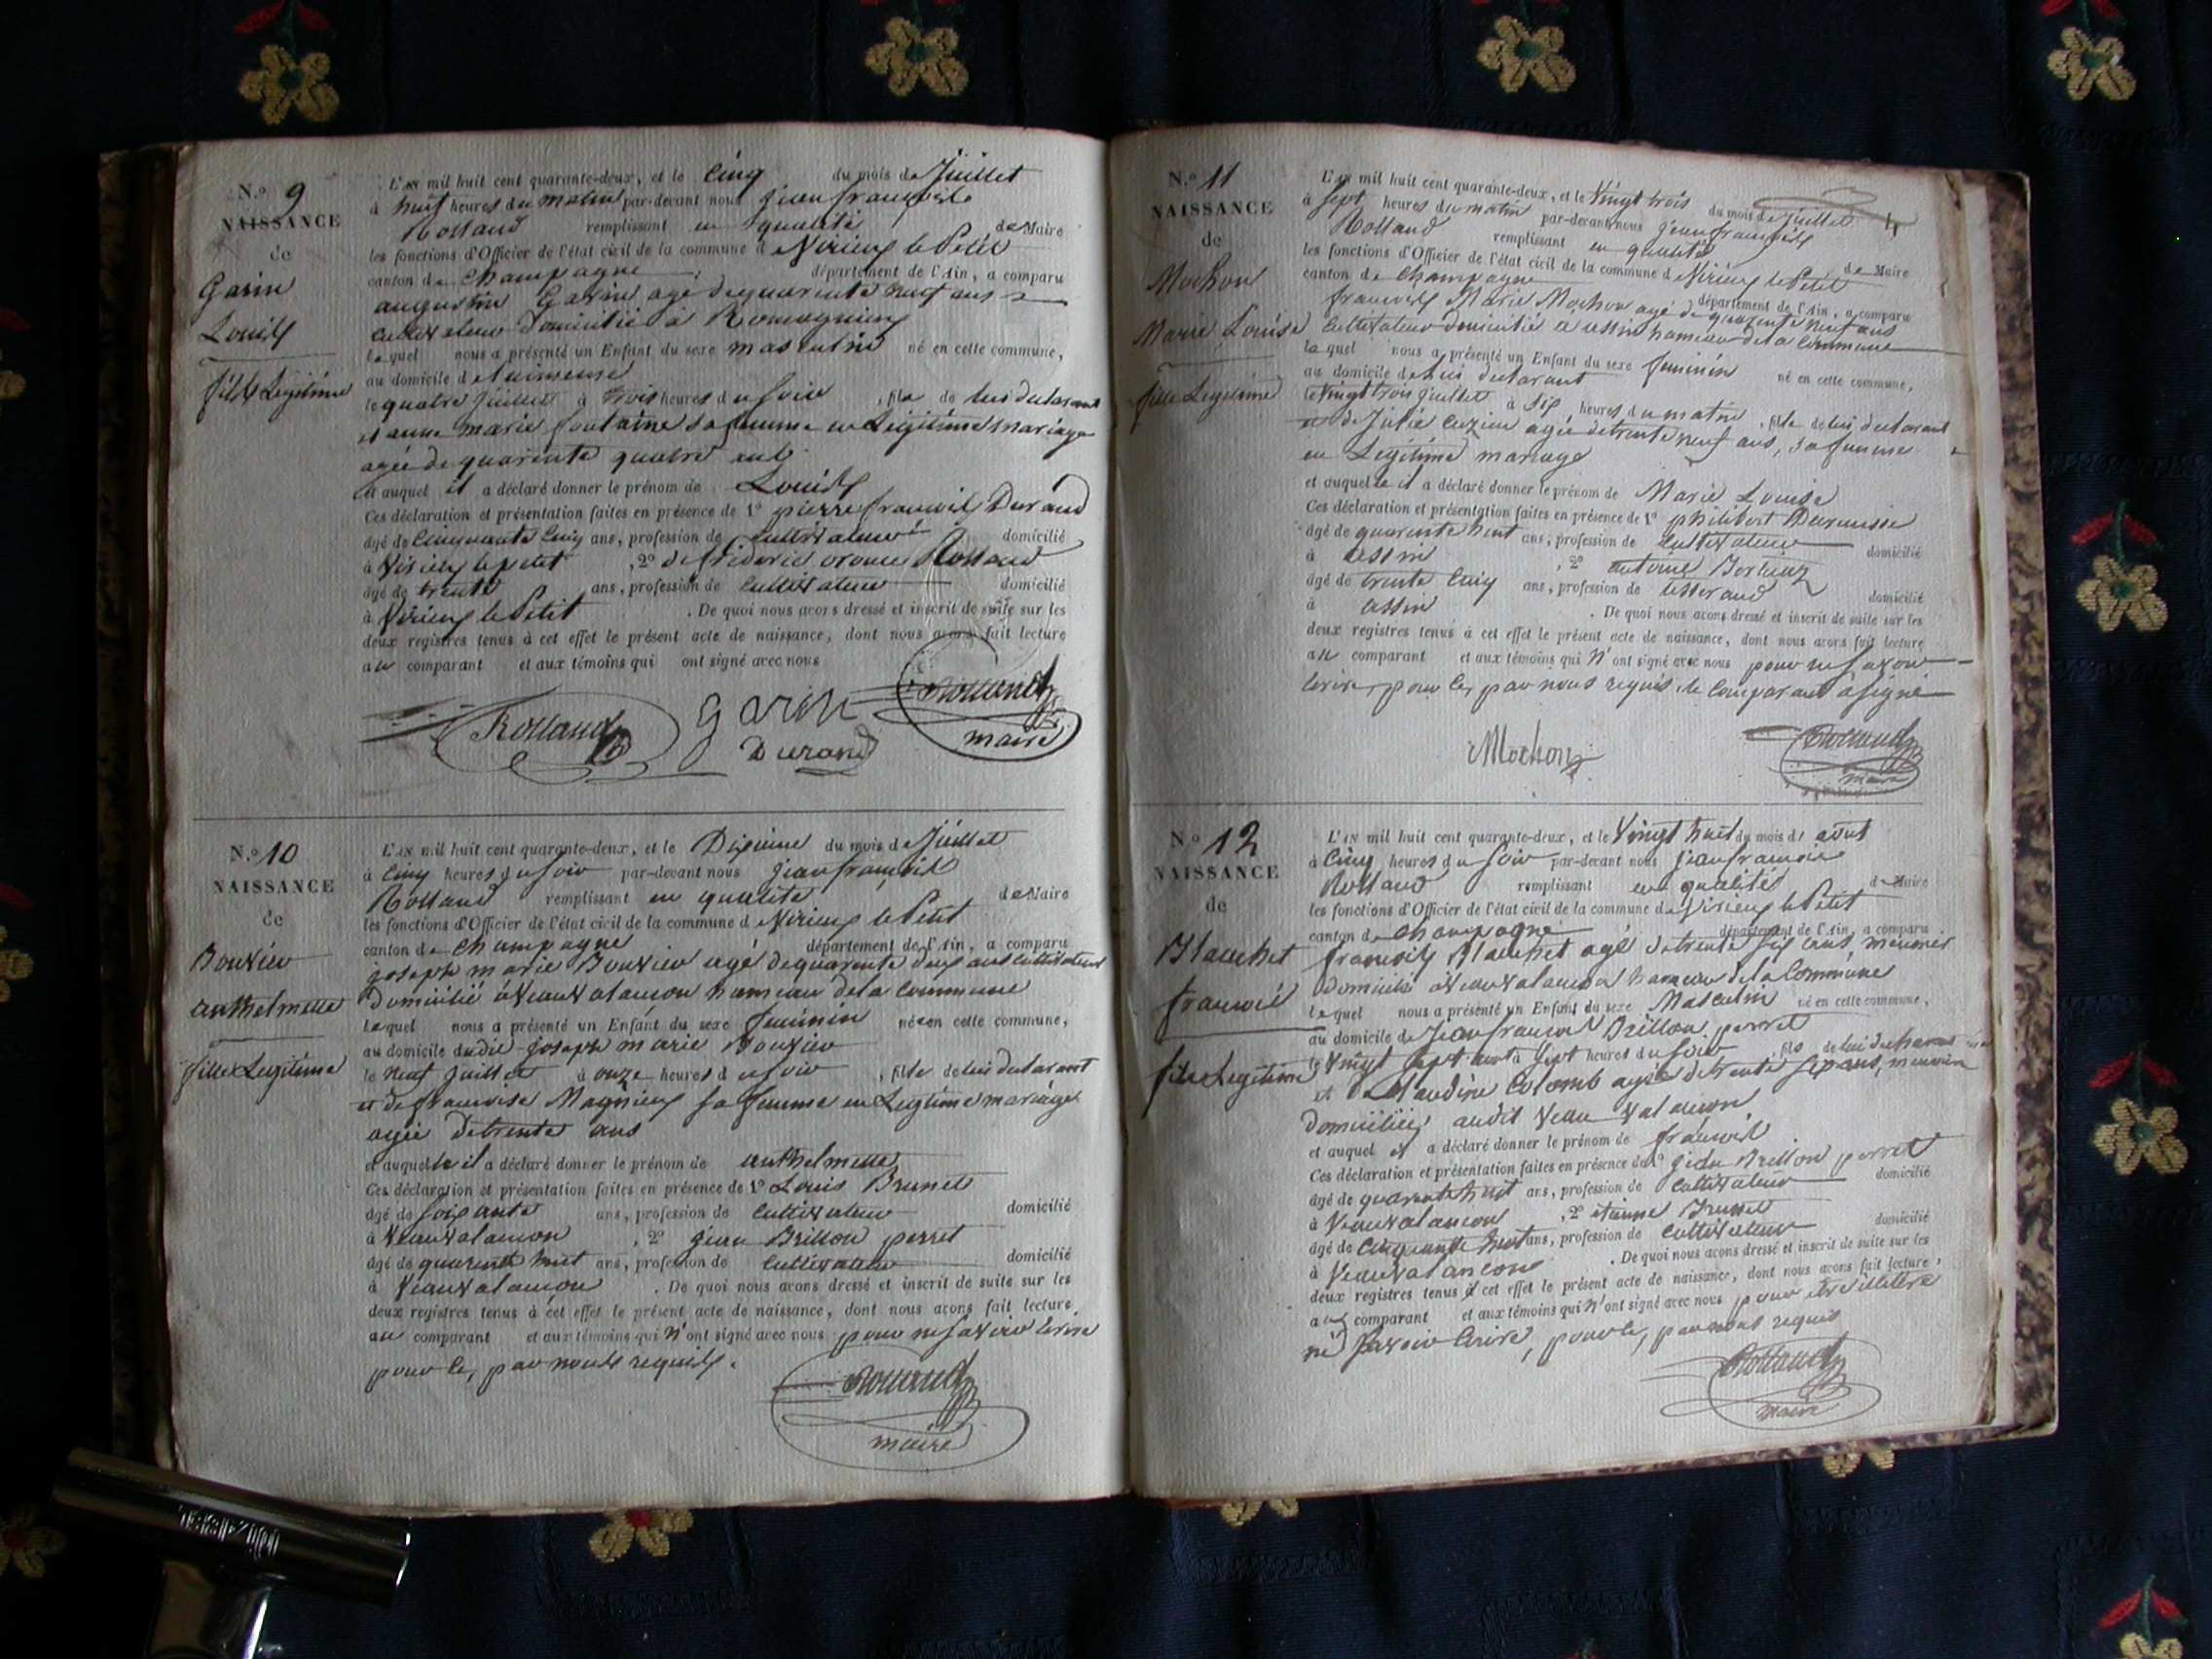 N.o 9
NAISSANCE
de
Garin
Louis
fils Légitime
L'AN mil huit cent quarante-deux, et le Cinq du mois de Juillet
à huit heures du matin par-devant nous jean françois
Rolland remplissant en qualité de Maire
les fonctions d'Officier de l'état civil de la commune de Virieu le Petit
canton de Champagne, département de l'Ain, a comparu
augustin Garin agé de quarente neuf ans
cultivateur domicilié à Romagnieu
lequel nous a présenté un Enfant du sexe masculin né en cette commune,
au domicile de
le quatre Juillet à trois heures du soir, fils de lui declarant
et anne marie fontaine sa femme en Légitime mariage
agée de quarente quatre ans
et auquel il a déclaré donner le prénom de Louis
Ces déclaration et présentation faites en présence de 1o pierre françois Durand
âgé de Cinquante Cinq ans, profession de cultivateur domicilié
à Virieu le petit, 2o Rolland
âgé de trente ans, profession de cultivateur domicilié
à Virieu le Petit. De quoi nous avons dressé et inscrit de suite sur les
deux registres tenus à cet effet le présent acte de naissance, dont nous avons fait lecture
au comparant et aux témoins qui ont signé avec nous
Rolland Garin Rolland
Durand maire
N.o 10
NAISSANCE
de
Bouvier
anthelmette
fille Légitime
L'AN mil huit cent quarante-deux, et le Dixieme du mois de Juillet
à Cinq heures du soir par-devant nous jean françois
Rolland remplissant en qualité de Maire
les fonctions d'Officier de l'état civil de la commune de Virieu le Petit
canton de Champagne département de l'Ain, a comparu
joseph marie Bouvier agé de quarente deux ans cultivateur
domicilié à Veauvalançon hameau de la commune
lequel nous a présenté un Enfant du sexe feminin né en cette commune,
au domicile dudit joseph marie Bouvier
le neuf juillet à onze heures du soir, fille de lui declarant
et de françoise Magnieu sa femme en Legtime mariage
agée de trente ans
et auquelle il a déclaré donner le prénom de anthelmette
Ces déclaration et présentation faites en présence de 1o Louis Brunet
âgé de soixante ans, profession de cultivateur domicilié
à Veauvalancon, 2o jean Brillon perret
âgé de quarente huit ans, profession de cultivateur domicilié
à Veauvalancon. De quoi nous avons dressé et inscrit de suite sur les
deux registres tenus à cet effet le présent acte de naissance, dont nous avons fait lecture,
au comparant et aux témoins qui n'ont signé avec nous pour ne savoir Ecrire
pour ce, par nous requis.
Rolland
maire
N.o 11
NAISSANCE
de
Mochon
Marie Louise
fille Légitime
L'AN mil huit cent quarante-deux, et le Vingt trois du mois de Juillet
à sept heures du matin par-devant nous jean françois
Rolland remplissant en qualité de Maire
les fonctions d'Officier de l'état civil de la commune de Virieu le Petit
canton de Champagne département de l'Ain, a comparu
françois Marie Mochon agé de quarente neuf ans
Cultivateur domicilié a assin hameau de la Commune
lequel nous a présenté un Enfant du sexe feminin né en cette commune,
au domicile de lui declarant
le Vingt trois juillet à six heures du matin, fille de lui declarant
et de Julie Cuzin agée de trente neuf ans, sa femme
en Légitime mariage
et auquelle il a déclaré donner le prénom de Marie Louise
Ces déclaration et présentation faites en présence de 1o philibert
âgé de quarente huit ans, profession de Cultivateur domicilié
à assin, 2o antoine
âgé de trente cinq ans, profession de tisserand domicilié
à assin. De quoi nous avons dressé et inscrit de suite sur les
deux registres tenus à cet effet le présent acte de naissance, dont nous avons fait lecture
au comparant et aux témoins qui n'ont signé avec nous pour ne savoir
Ecrire, pour ce, par nous requis, le Comparant à signé
Mochon Rolland
maire
N.o 12
NAISSANCE
de
Blanchet
françois
fils Legitime
L'AN mil huit cent quarante-deux, et le Vingt huit du mois d'août
à Cinq heures du soir par-devant nous jean françois
Rolland remplissant en qualité de Maire
les fonctions d'Officier de l'état civil de la commune de Virieu le Petit
canton de Champagne département de l'Ain, a comparu
françois Blanchet agé de trente six ans, meunier
domicilié à Veauvalancon hameau de la Commune
lequel nous a présenté un Enfant du sexe Masculin né en cette commune,
au domicile de Jean françois Brillon perret
le Vingt sept aout à sept heures du soir, fils de lui declarant
et de Claudine Colomb agée de trente six ans,
domiciliés audit Veauvalançon
et auquel il a déclaré donner le prénom de françois
Ces déclaration et présentation faites en présence de 1o jean Brillon perret
âgé de quarente huit ans, profession de cultivateur domicilié
à Veauvalancon, 2o etienne Brunet
âgé de Cinquante huit ans, profession de Cultivateur domicilié
à Veauvalancon. De quoi nous avons dressé et inscrit de suite sur les
deux registres tenus à cet effet le présent acte de naissance, dont nous avons fait lecture,
au comparant et aux témoins qui n'ont signé avec nous pour etre illettré
ne savoir Ecrire, pour ce, par nous requis
Rolland
maire